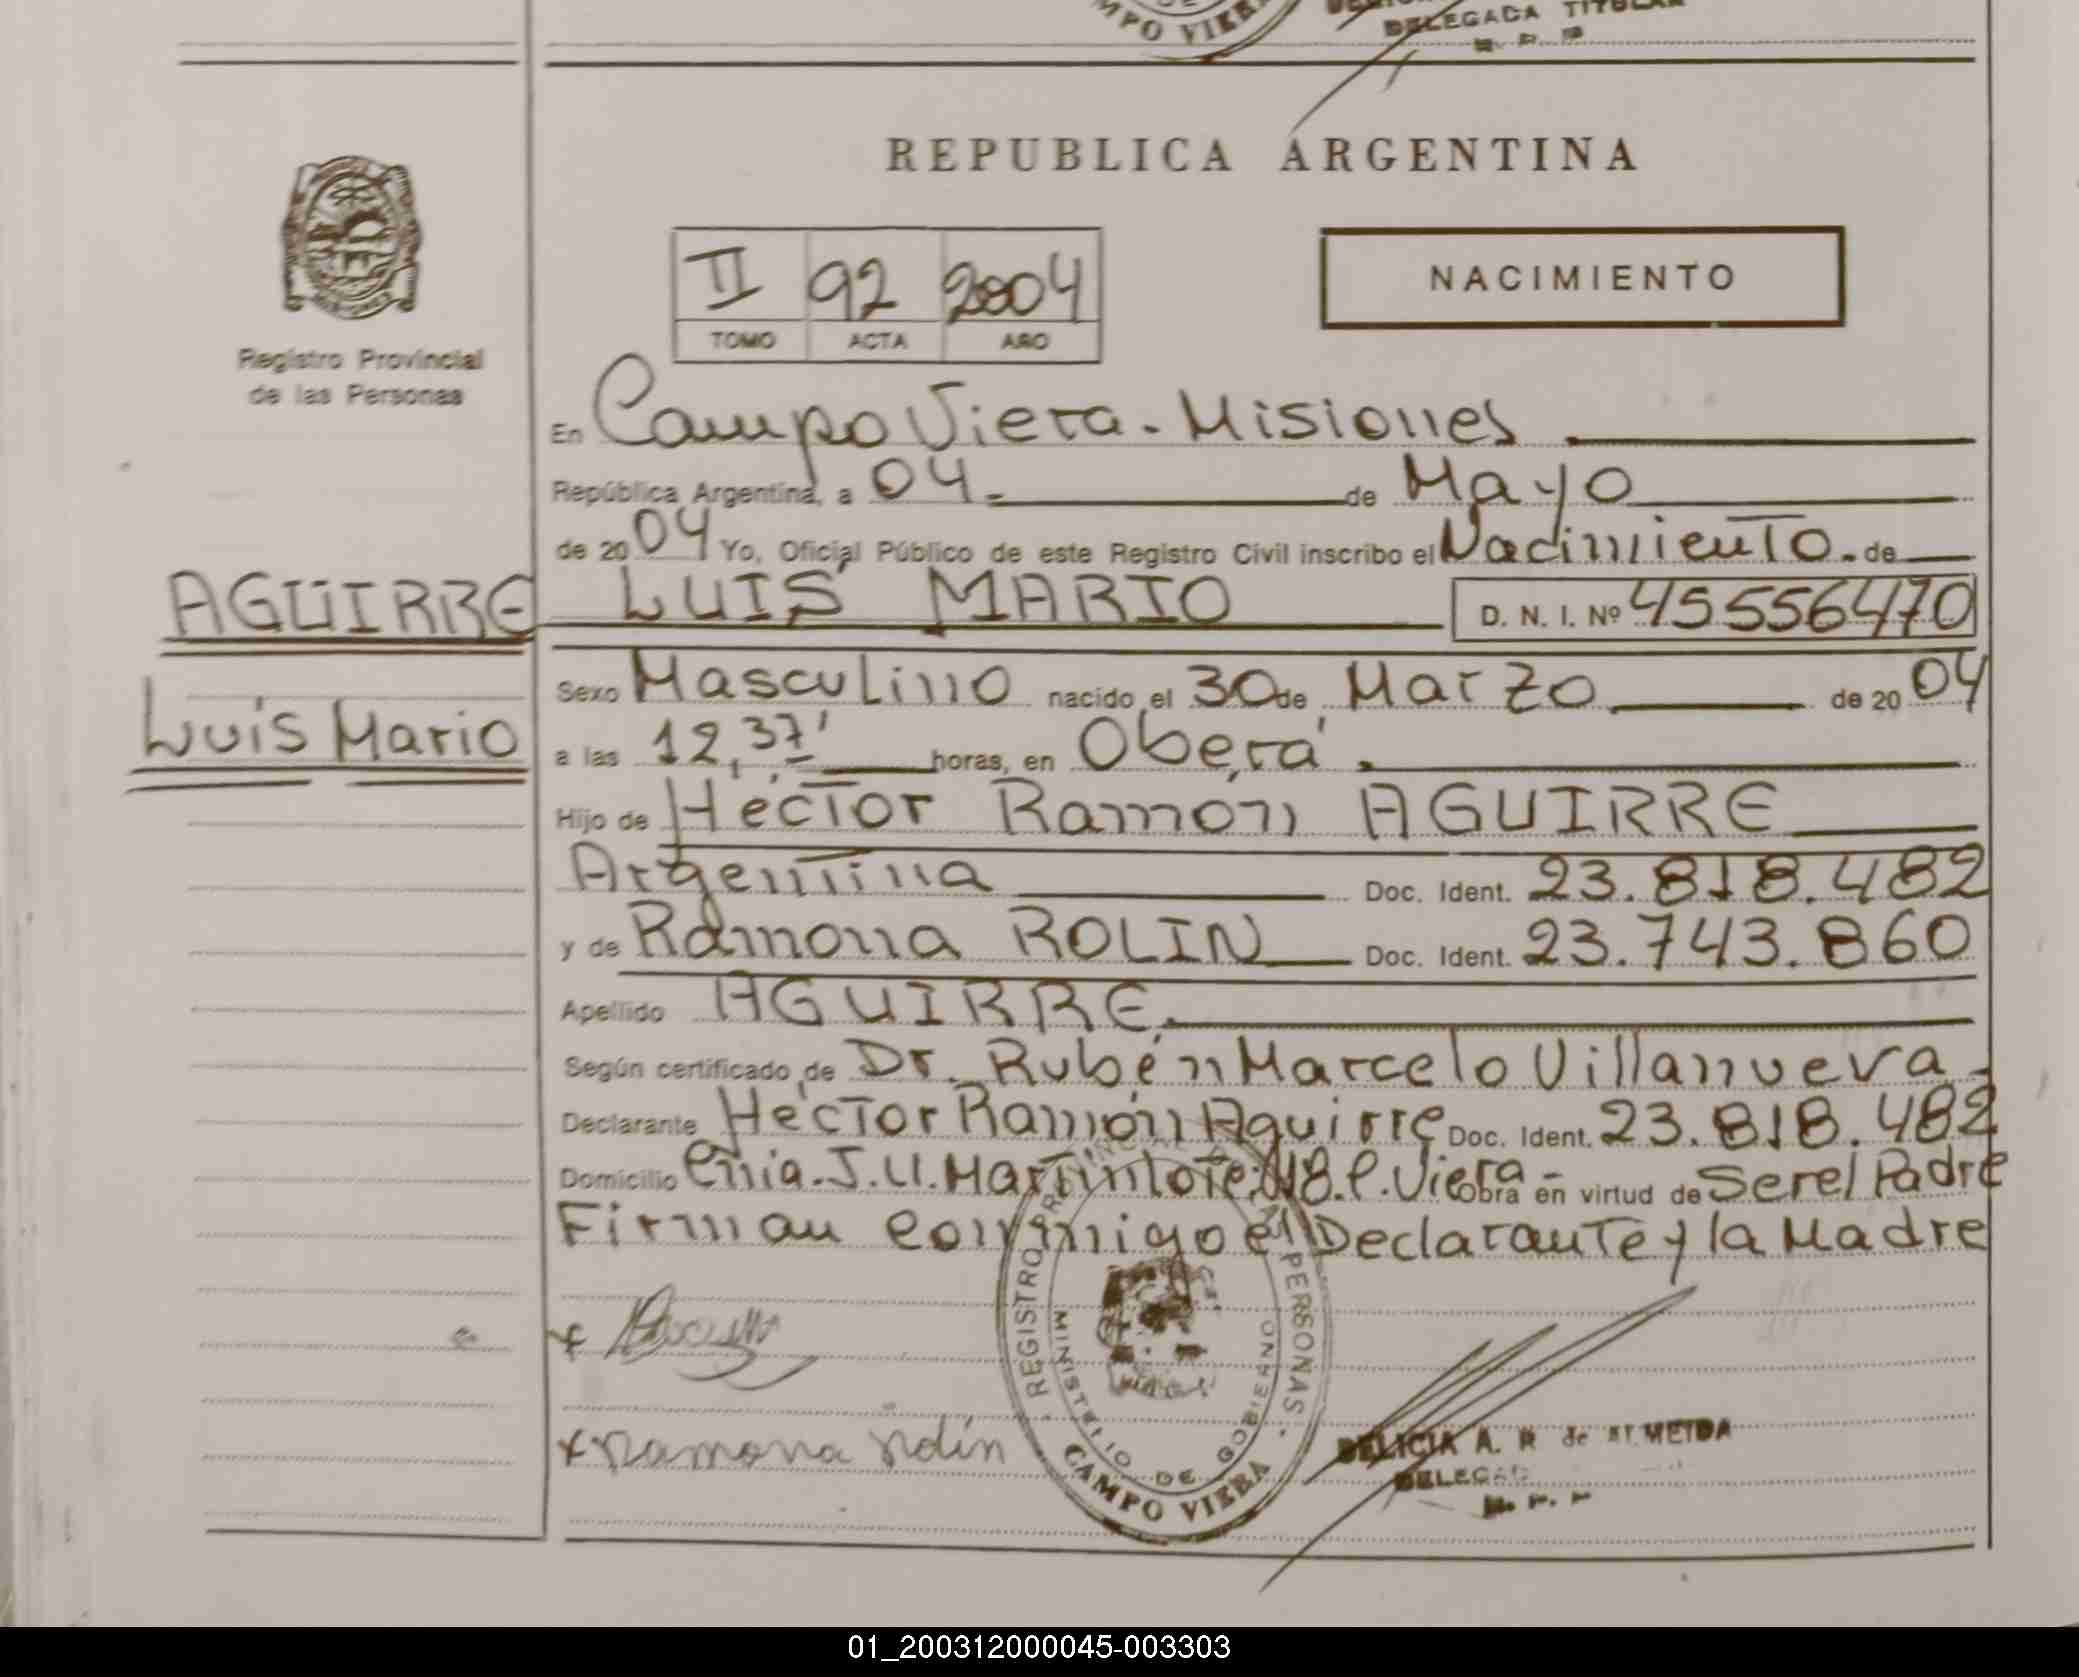 CAMPO VIERA
DELEGADA TITULAR
REPUBLICA ARGENTINA
II 92 2004
TOMO ACTA AÑO
NACIMIENTO
Registro Provincial
de las Personas
En Campo Viera - Misiones
República Argentina, a 04 de Mayo
de 2004 Yo, Oficial Público de este Registro Civil inscribo el Nacimiento. de
AGÜIRRE LUIS MARIO D. N. I. Nº 45556470
Luis Mario
Sexo Masculino nacido el 30 de Marzo de 2004
a las 12,37' horas, en Oberá.
Hijo de Héctor Ramón AGUIRRE
Argentina Doc. Ident. 23.818.482
y de Ramona ROLIN Doc. Ident. 23.743.860
Apellido AGUIRRE.
Según certificado de Dr. Rubén Marcelo Villanueva.
Declarante Héctor Ramón Aguirre Doc. Ident. 23.818.482
Domicilio Cnia. J.U. Martin lote: 18. C. Viera - obra en virtud de Ser el Padre
Firman conmigo el Declarante y la Madre
REGISTRO PROVINCIAL DE LAS PERSONAS
MINISTERIO DE GOBIERNO
CAMPO VIERA
x Ramona Rolín
DELICIA A. R de ALMEIDA
DELEGADA
01_200312000045-003303